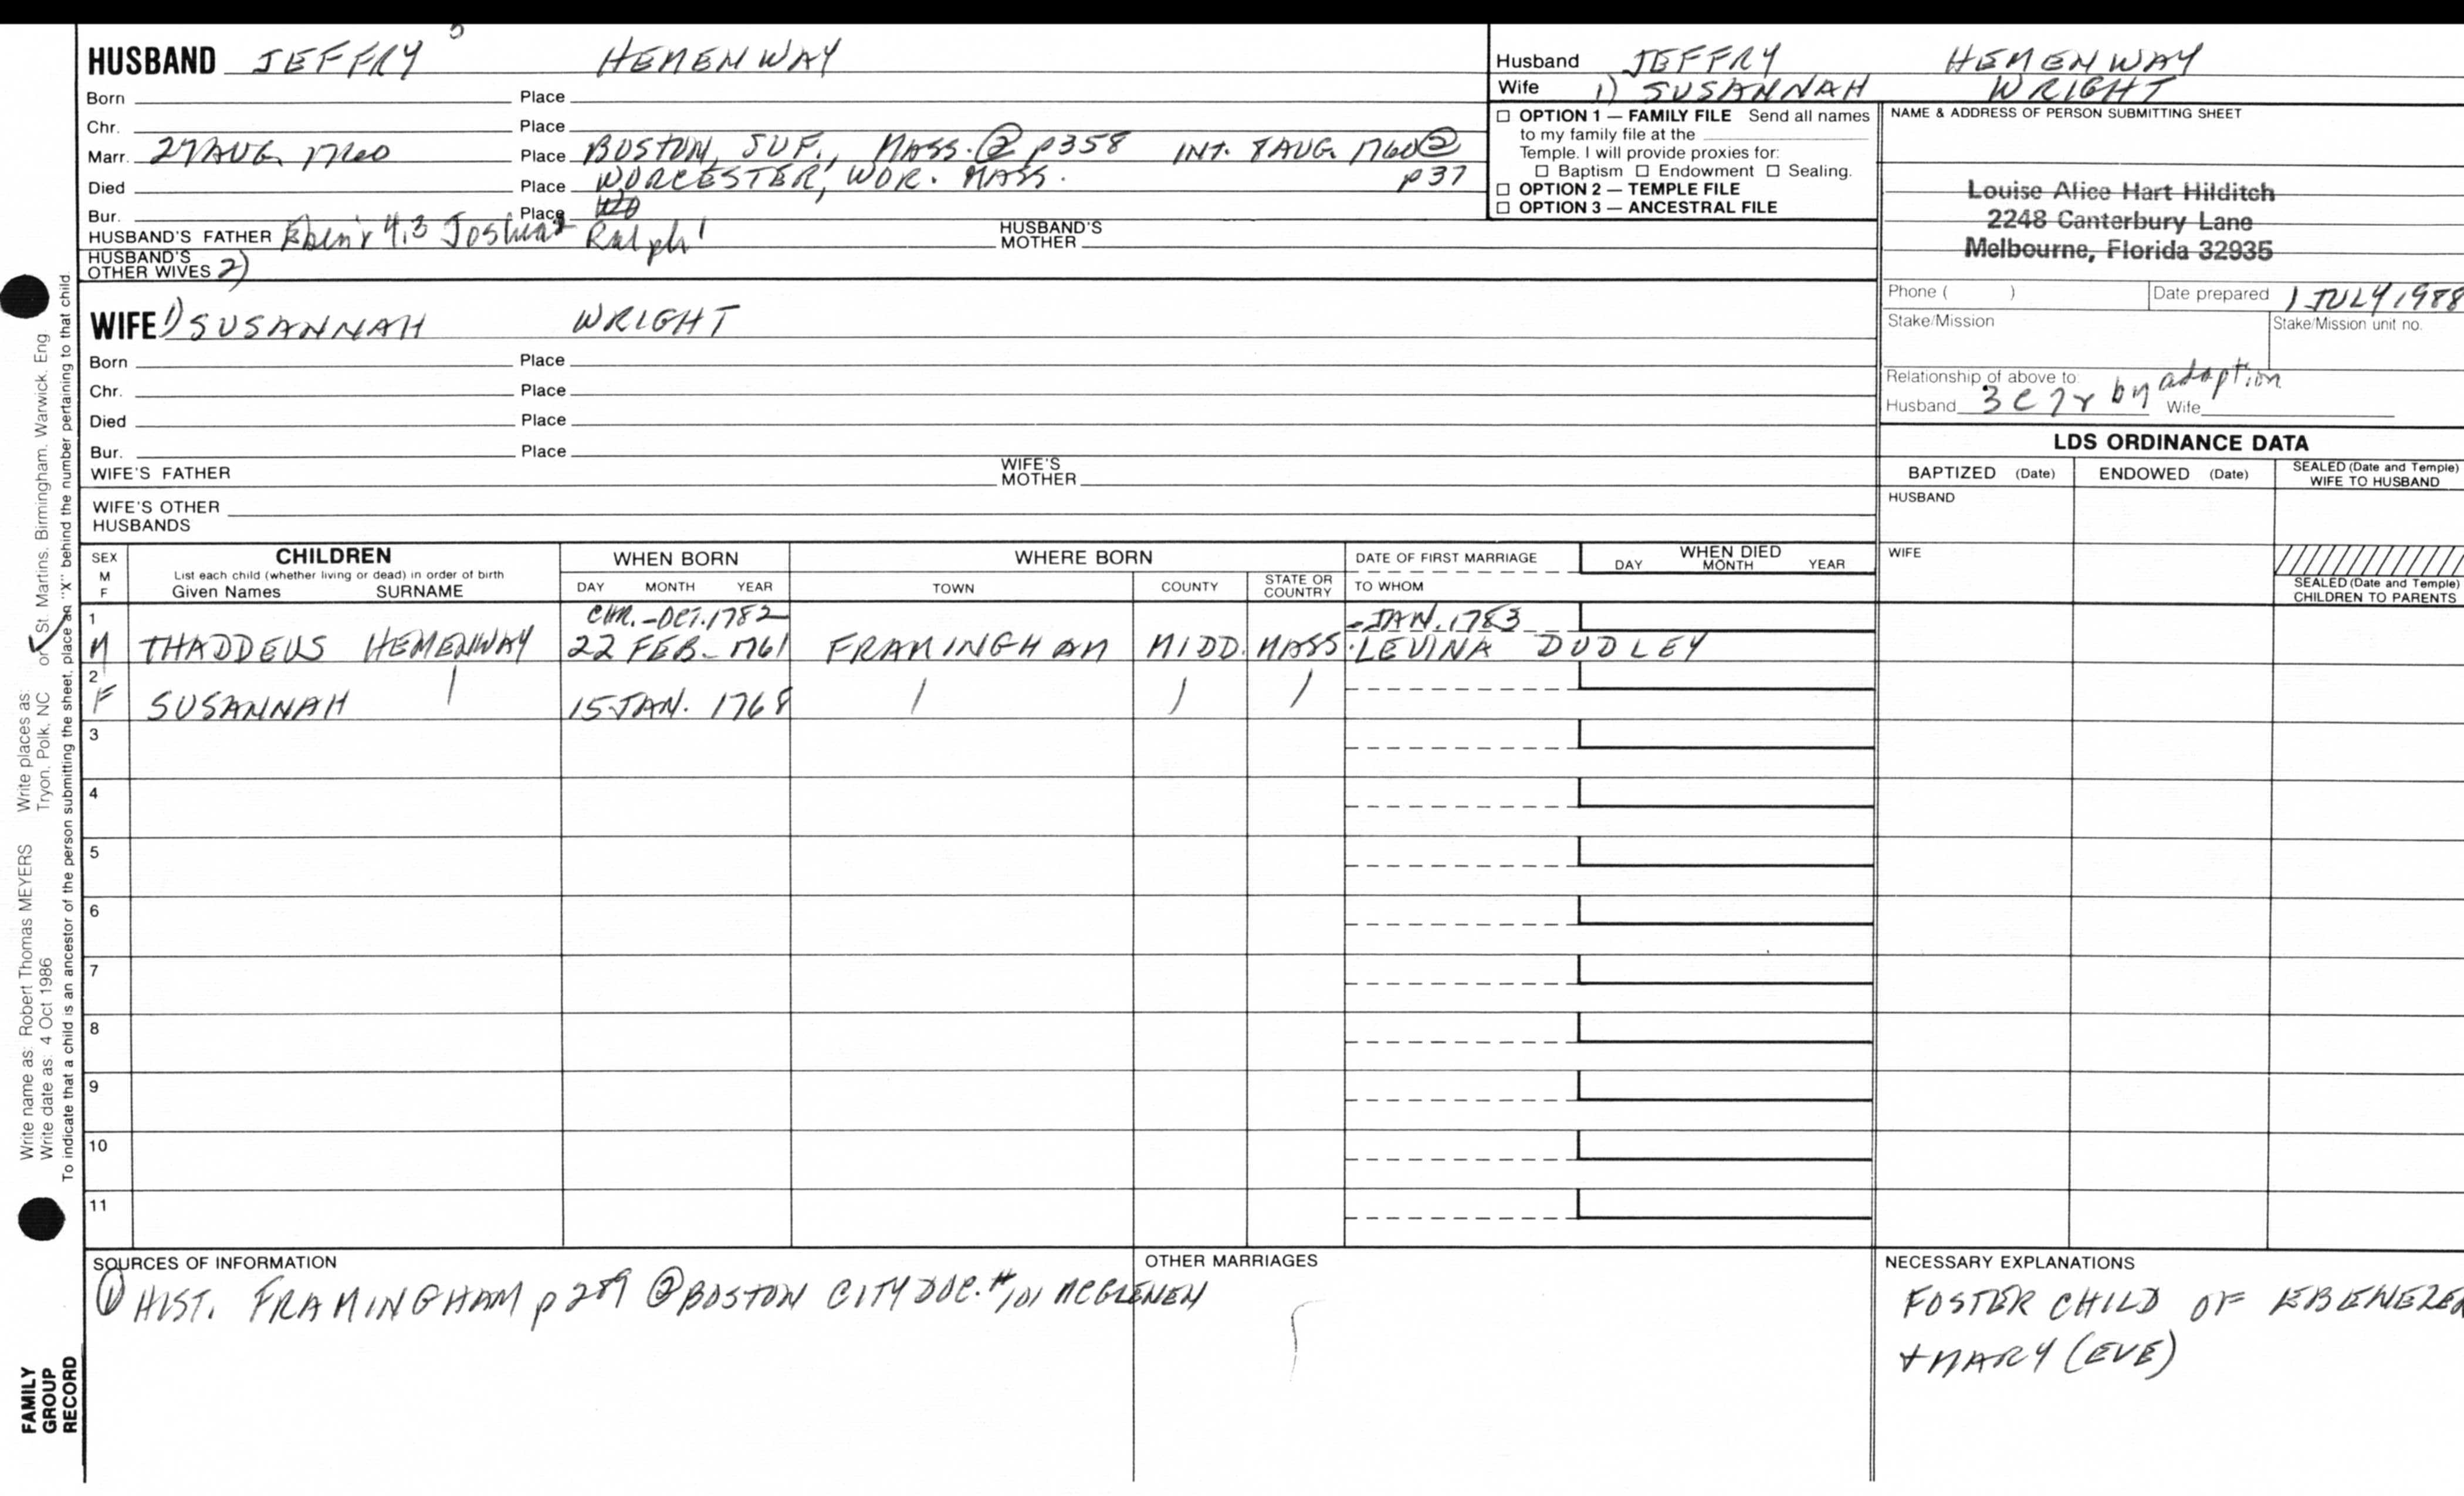 5
HUSBAND JEFFRY HEMENWAY
Born Place
Chr. Place
Marr. 27 AUG. 1760 Place BOSTON, SUF., MASS. ② p358 INT. 7 AUG. 1760 ②
Died Place WORCESTER, WOR. MASS. p37
Bur. Place
HUSBAND'S FATHER Eben'r 4,3 Joshua 2 Ralph 1 HUSBAND'S MOTHER
HUSBAND'S OTHER WIVES 2)
WIFE 1) SUSANNAH WRIGHT
Born Place
Chr. Place
Died Place
Bur. Place
WIFE'S FATHER WIFE'S MOTHER
WIFE'S OTHER HUSBANDS
Husband JEFFRY HEMENWAY
Wife 1) SUSANNAH WRIGHT
☐ OPTION 1 — FAMILY FILE Send all names
to my family file at the
Temple. I will provide proxies for:
☐ Baptism ☐ Endowment ☐ Sealing.
☐ OPTION 2 — TEMPLE FILE
☐ OPTION 3 — ANCESTRAL FILE
NAME & ADDRESS OF PERSON SUBMITTING SHEET
Louise Alice Hart Hilditch
2248 Canterbury Lane
Melbourne, Florida 32935
Phone ( ) Date prepared 1 JULY 1988
Stake/Mission Stake/Mission unit no.
Relationship of above to
Husband 3 C 7 r by adoption Wife
LDS ORDINANCE DATA
BAPTIZED (Date) ENDOWED (Date) SEALED (Date and Temple) WIFE TO HUSBAND
HUSBAND
WIFE
SEALED (Date and Temple) CHILDREN TO PARENTS
SEX M F
CHILDREN
List each child (whether living or dead) in order of birth
Given Names SURNAME
WHEN BORN
DAY MONTH YEAR
WHERE BORN
TOWN COUNTY STATE OR COUNTRY
DATE OF FIRST MARRIAGE
TO WHOM
WHEN DIED
DAY MONTH YEAR
1 CHR. - OCT. 1782 - JAN. 1783
M THADDEUS HEMENWAY 22 FEB. 1761 FRAMINGHAM MIDD. MASS. LEVINA DUDLEY
2
F SUSANNAH 15 JAN. 1768
3
4
5
6
7
8
9
10
11
SOURCES OF INFORMATION
① HIST. FRAMINGHAM p 289 ② BOSTON CITY DOC. #101 MCGLENEN
OTHER MARRIAGES
NECESSARY EXPLANATIONS
FOSTER CHILD OF EBENEZER
+ MARY (EVE)
Write name as: Robert Thomas MEYERS Write places as:
Write date as: 4 Oct 1986 Tryon, Polk, NC or St. Martins, Birmingham, Warwick, Eng
To indicate that a child is an ancestor of the person submitting the sheet, place an "X" behind the number pertaining to that child.
FAMILY
GROUP
RECORD